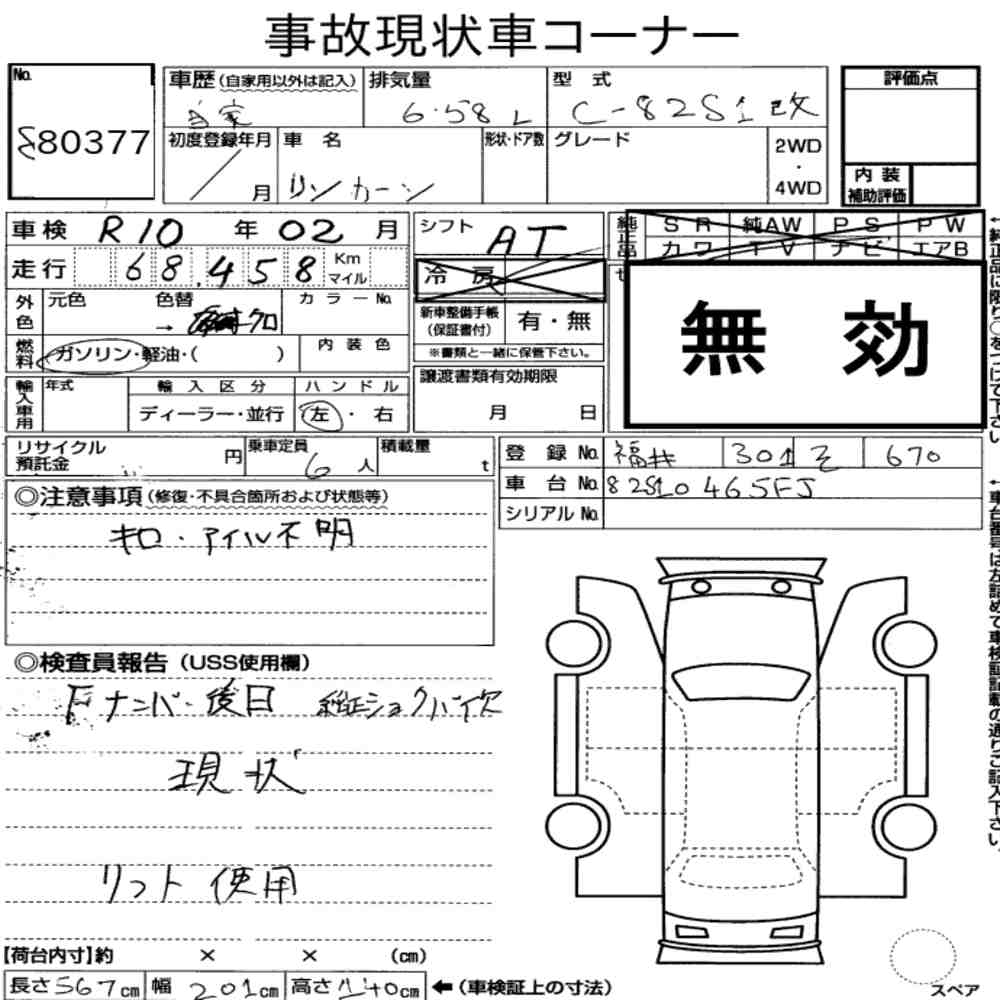 事故現状車コーナー
No. 80377
車歴(自家用以外は記入) 自家 排気量 6.58 L 型式 C-82S1改 評価点
初度登録年月 / 月 車名 リンカーン 形状・ドア数 グレード 2WD・4WD
内装補助評価
車検 R10 年 02 月 シフト AT 純正品 SR 純AW PS PW
カワ TV ナビ エアB
走行 68,458 Km マイル 冷房
外色 元色 色替 → クロ カラーNo. 新車整備手帳(保証書付) 有・無
※書類と一緒に保管下さい。
無効
燃料 ガソリン・軽油・( ) 内装色
譲渡書類有効期限 月 日
輸入車用 年式 輸入区分 ディーラー・並行 ハンドル 左・右
リサイクル預託金 円 乗車定員 6人 積載量 t
登録No. 福井 301 そ 670
車台No. 82S10465FJ
シリアルNo.
◎注意事項(修復・不具合箇所および状態等)
キロ・マイル不明
◎検査員報告(USS使用欄)
Fナンバー後日 純正ショックハイ欠
現状
リフト使用
【荷台内寸】約 × × (cm)
長さ567cm 幅201cm 高さ140cm ←(車検証上の寸法)
スペア
←純正品に限り○をつけて下さい
←車台番号は左詰めで車検証記載の通りご記入下さい。